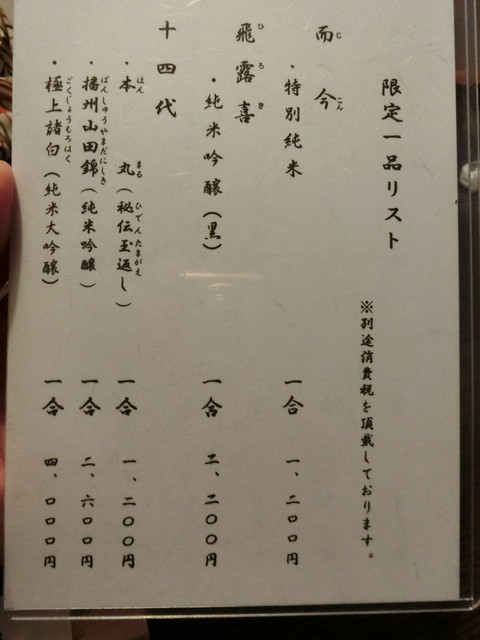 限定一品リスト
※別途消費税を頂戴しております。
而今
じこん
・特別純米 一合 一、二〇〇円
飛露喜
ひろき
・純米吟醸（黒） 一合 二、二〇〇円
十四代
・本丸（秘伝玉返し） 一合 一、二〇〇円
ほんまる ひでんたまがえ
・播州山田錦（純米吟醸） 一合 二、六〇〇円
ばんしゅうやまだにしき
・極上諸白（純米大吟醸） 一合 四、〇〇〇円
ごくじょうもろはく